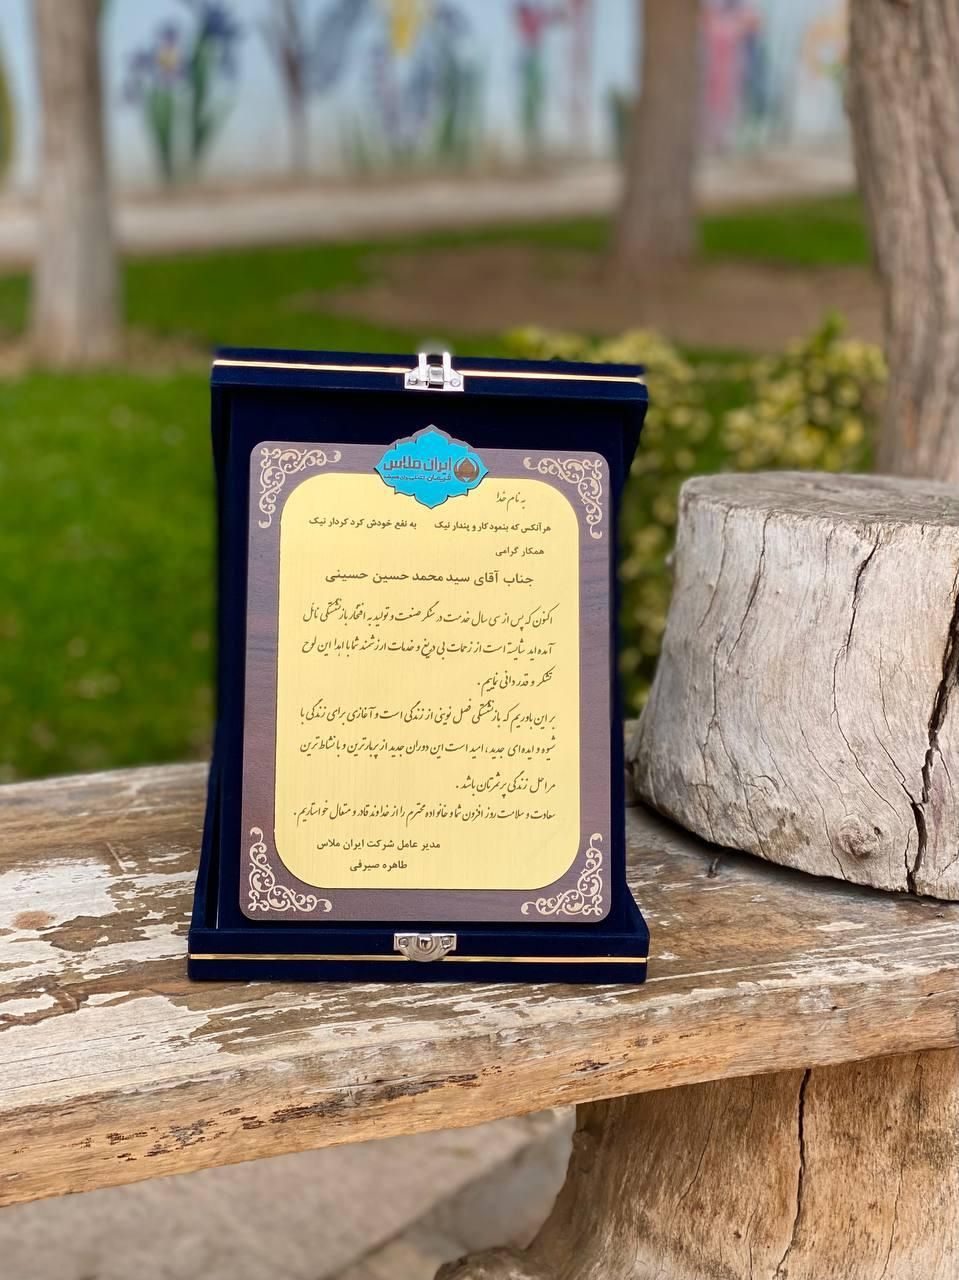 ایران ملاس
به نام خدا
هر آنکس که بنمود کار و پندار نیک به نفع خودش کرد کردار نیک
همکار گرامی
جناب آقای سید محمد حسین حسینی
اکنون که پس از سی سال خدمت در سنگر صنعت و تولید به افتخار بازنشستگی نائل
آمده اید شایسته است از زحمات بی دریغ و خدمات ارزشمند شما با اهدا این لوح
تشکر و قدردانی نماییم .
بر این باوریم که بازنشستگی فصل نوینی از زندگی است و آغازی برای زندگی با
شیوه و ایده ای جدید ، امید است این دوران جدید از پربارترین و با نشاط ترین
مراحل زندگی پر ثمرتان باشد .
سعادت و سلامت روز افزون شما و خانواده محترم را از خداوند قادر و متعال خواستاریم .
مدیر عامل شرکت ایران ملاس
طاهره صیرفی